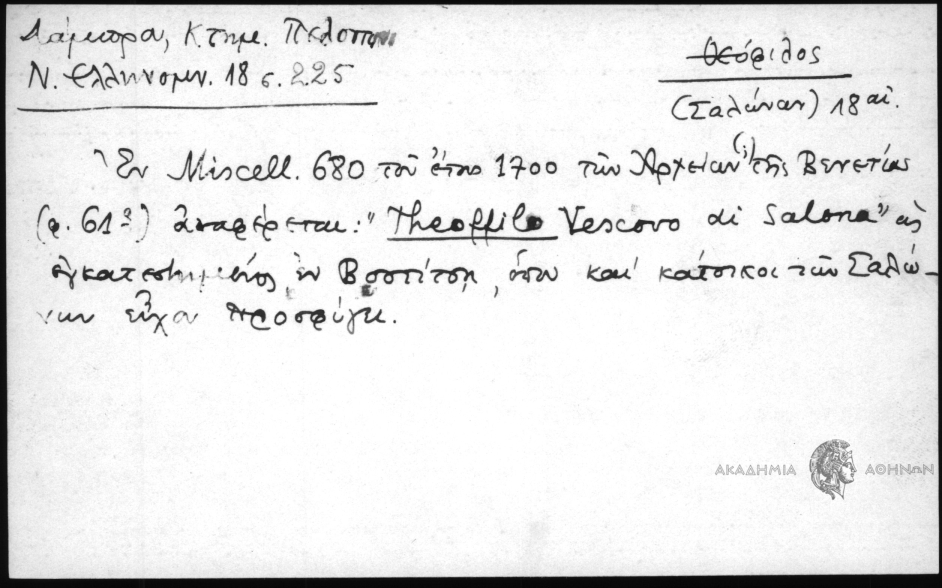 Λάμπρου, Κτημ. Πελοπον
Ν. Ελληνομν. 18 σ. 225
Θεόφιλος
(Σαλώνων) 18 αἰ.
Ἐν Miscell. 680 τοῦ ἔτους 1700 τῶν Ἀρχείων (;) τῆς Βενετίας
(φ. 61α) ἀναφέρεται: "Theoffilo Vescovo di Salona" ὡς
ἐγκατεστημένος ἐν Βοστίτσῃ, ὅπου καὶ κάτοικοι τῶν Σαλώ-
νων εἶχον προσφύγει.
ΑΚΑΔΗΜΙΑ ΑΘΗΝΩΝ